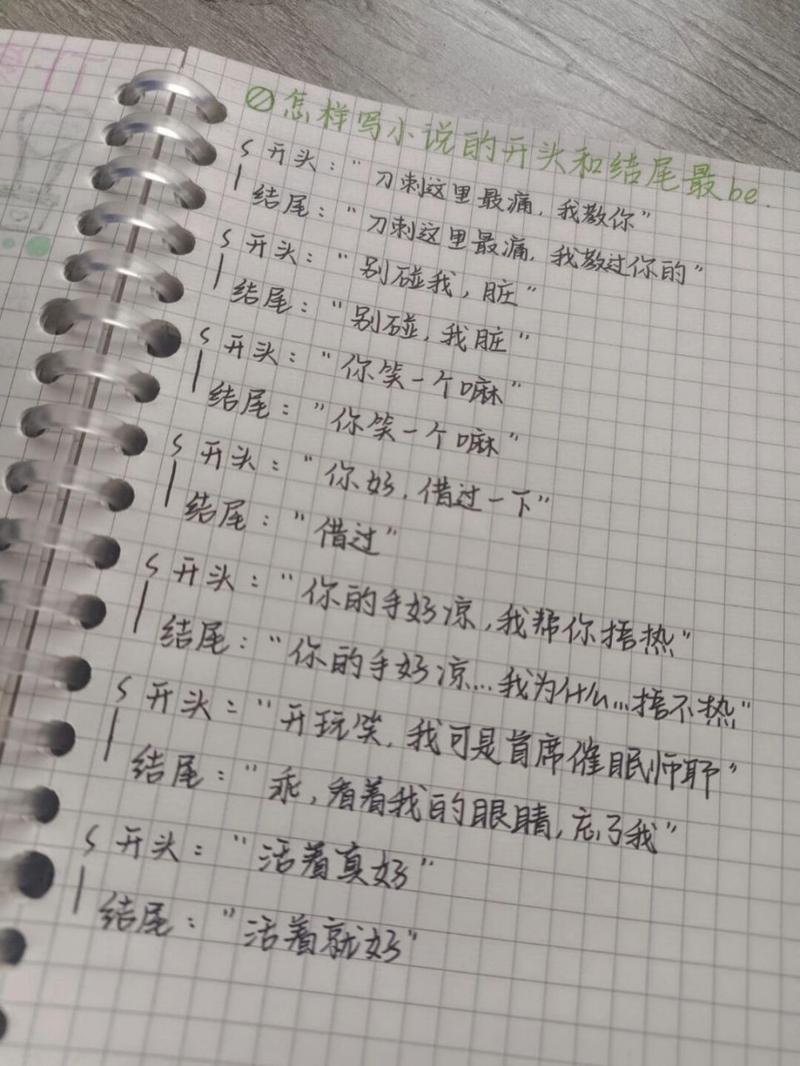 怎样写小说的开头和结尾最be.
开头："刀刺这里最痛,我教你"
结尾："刀刺这里最痛,我教过你的"
开头："别碰我,脏"
结尾："别碰,我脏"
开头："你笑一个嘛"
结尾："你笑一个嘛"
开头："你好,借过一下"
结尾："借过"
开头："你的手好凉,我帮你捂热"
结尾："你的手好凉...我为什么...捂不热"
开头："开玩笑,我可是首席催眠师耶"
结尾："乖,看着我的眼睛,忘了我"
开头："活着真好"
结尾："活着就好"